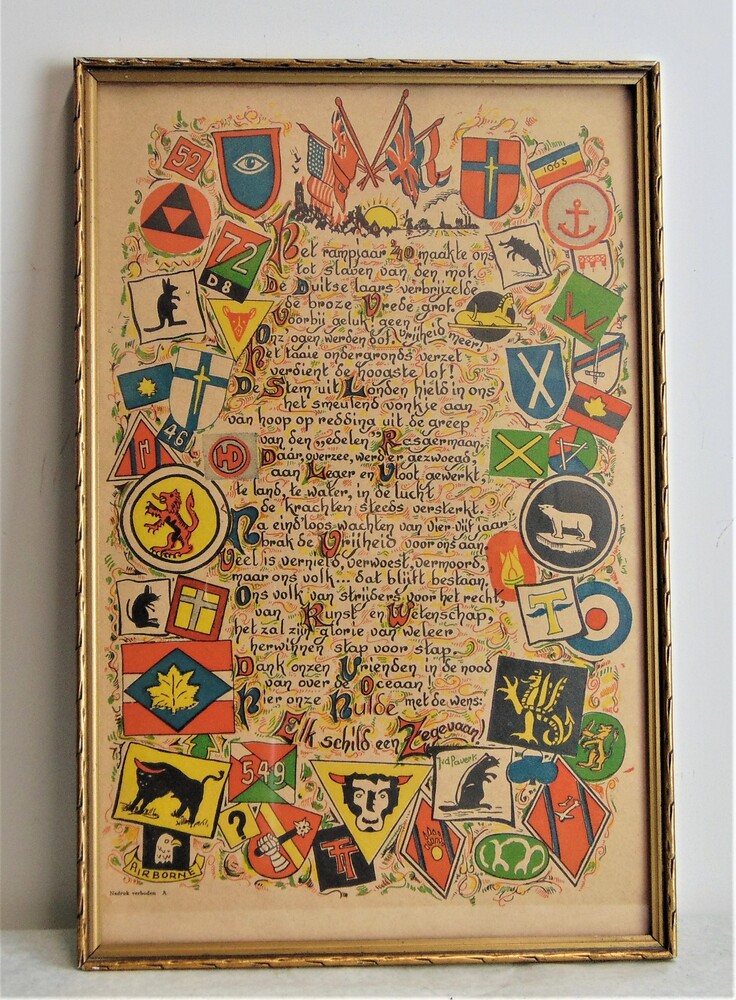 52
1063
72
D8
Het rampjaar '40 maakte ons
tot slaven van den mof.
De Duitse laars verbrijzelde
de broze Vrede grof.
Voorbij geluk, geen Vrijheid meer!
Onz' ogen werden dof.
Het taaie ondergronds verzet
verdient de hoogste lof!
De Stem uit Londen hield in ons
het smeulend vonkje aan
van hoop op redding uit de greep
van den „edelen” Rasgermaan.
Daar, overzee, werd er gezwoegd,
aan Leger en Vloot gewerkt
te land, te water, in de lucht
de krachten steeds versterkt.
Na eind'loos wachten van vier-vijf jaar
brak de Vrijheid voor ons aan.
Veel is vernield, verwoest, vermoord,
maar ons volk... dat blijft bestaan.
Ons volk van strijders voor het recht,
van Kunst en Wetenschap,
het zal zijn glorie van weleer
herwinnen stap voor stap.
Dank onzen Vrienden in de nood
van over de Oceaan!
Hier onze Hulde met de wens:
Elk schild een Zegevaan
46
HD
T
549
?
TT
AIRBORNE
Nadruk verboden. A.